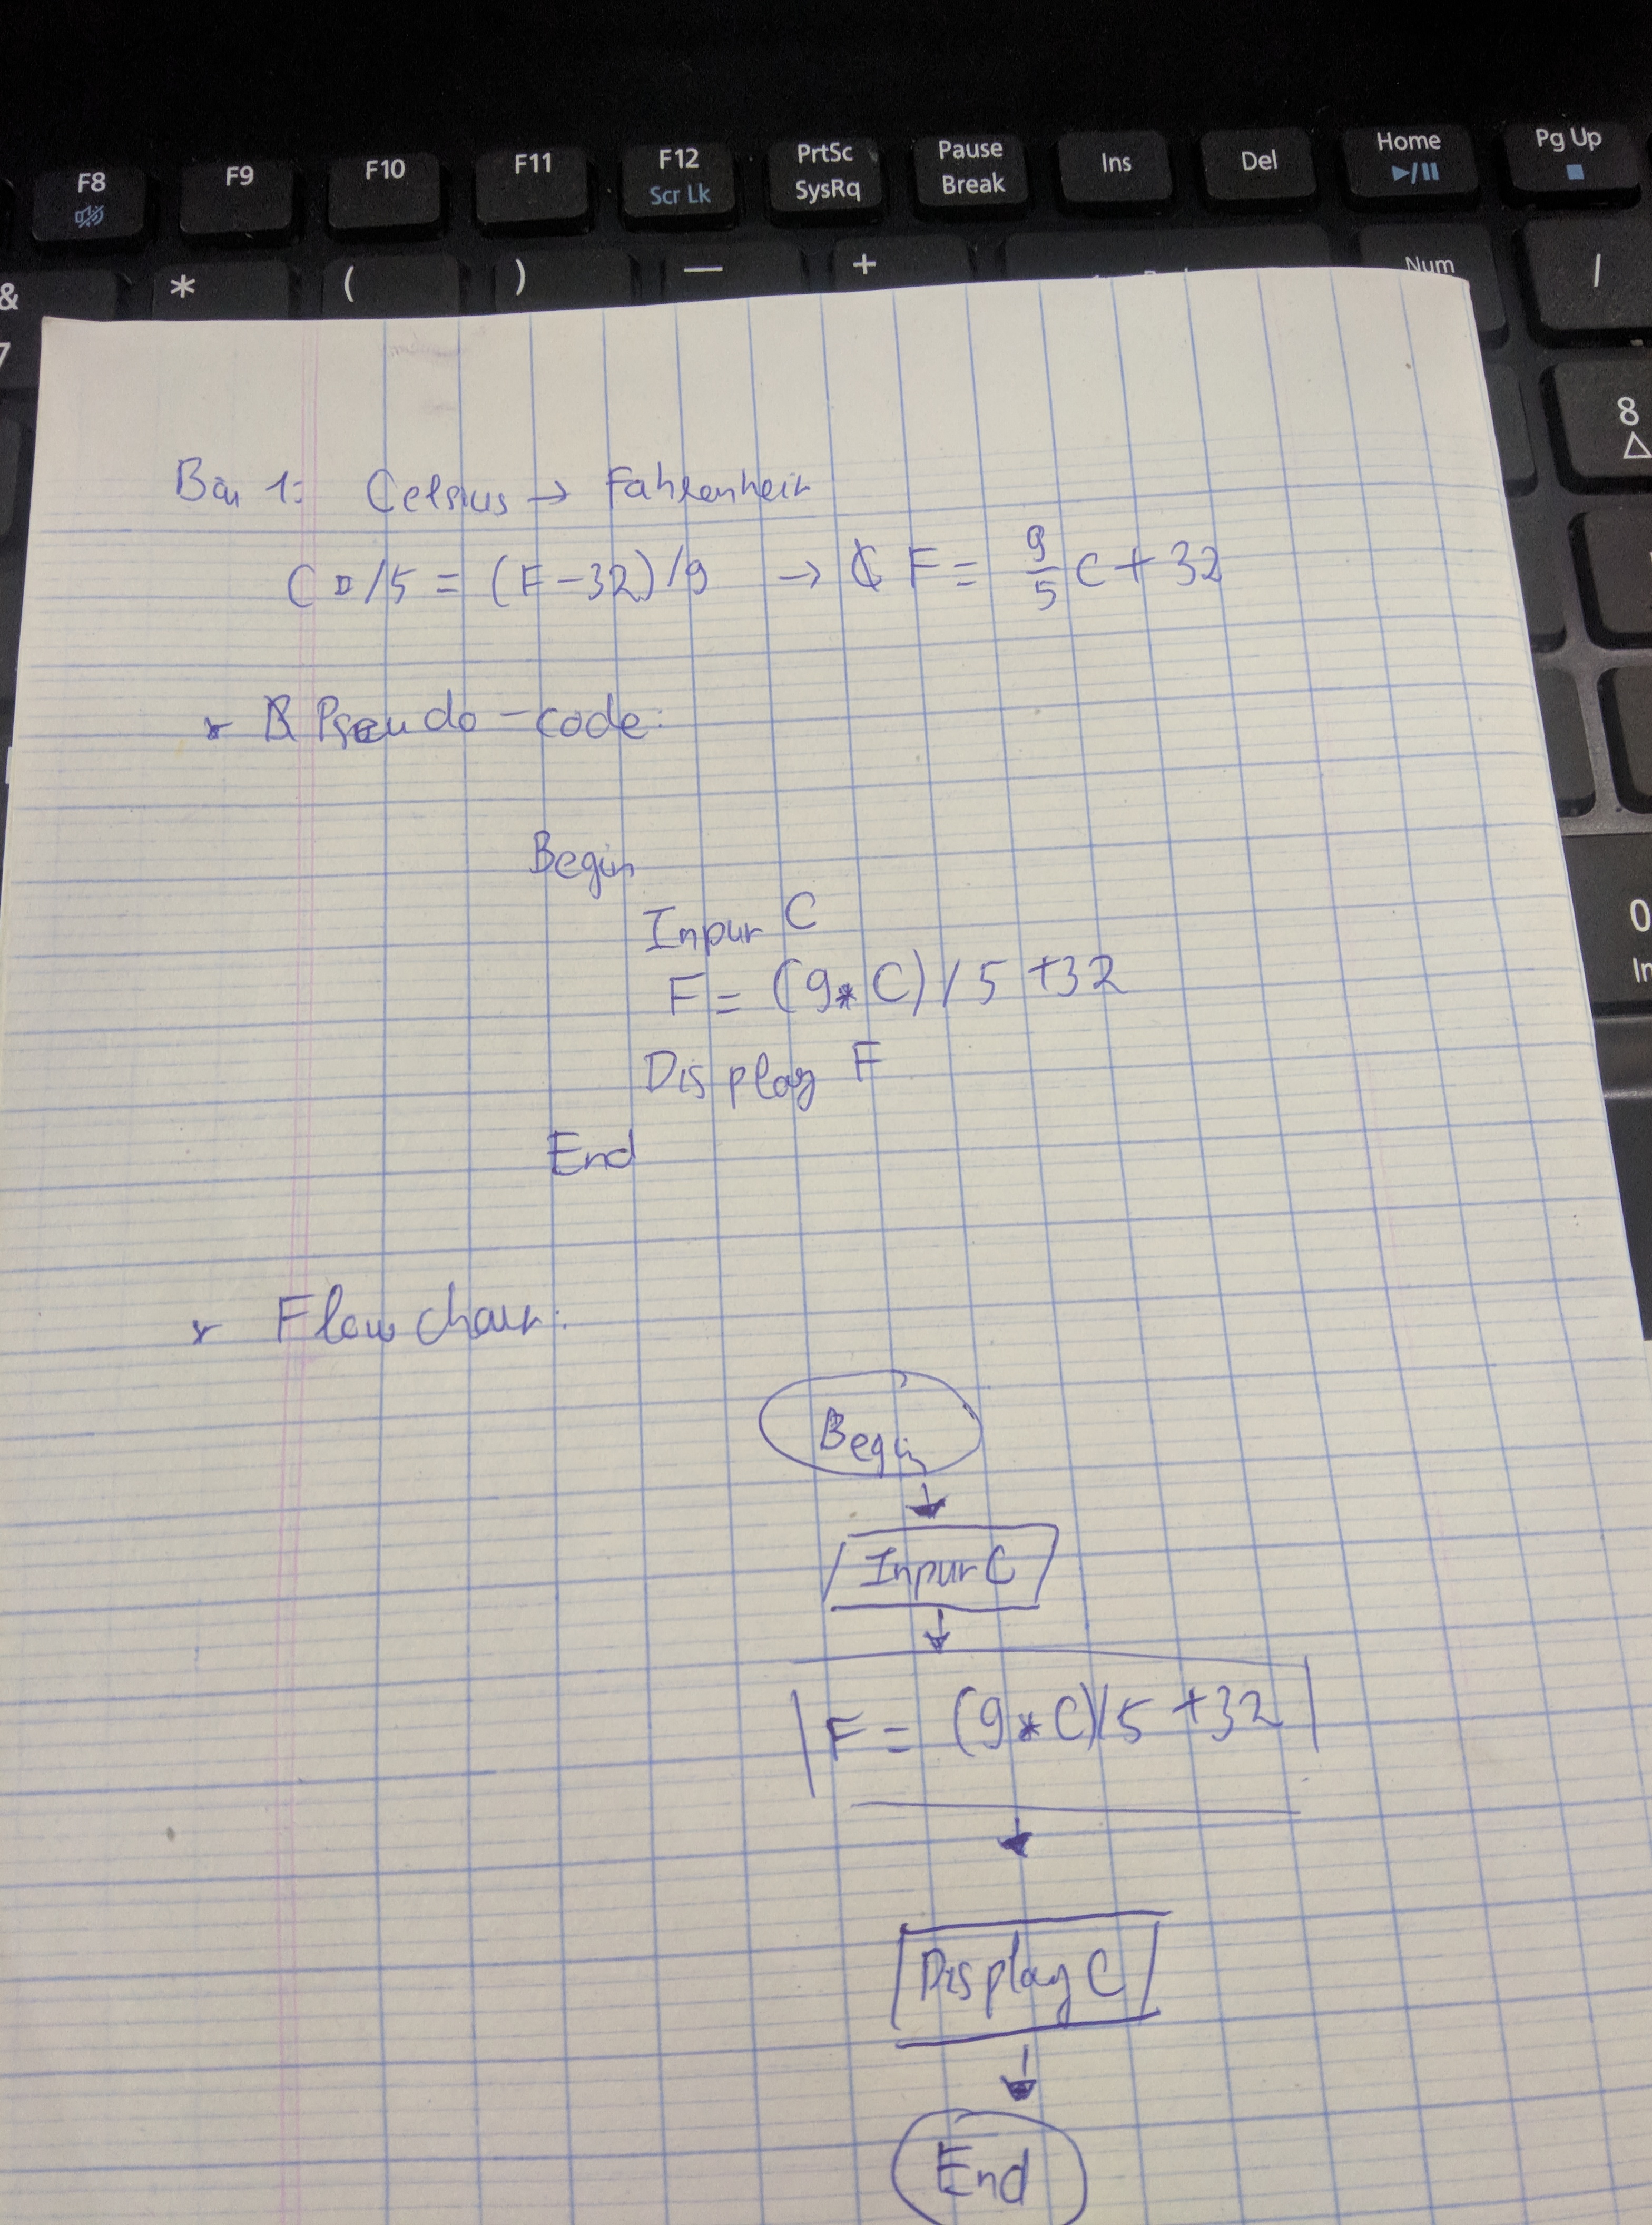 F8 F9 F10 F11 F12 PrtSc Pause Ins Del Home Pg Up
Scr Lk SysRq Break
& * ( ) — + Num /
7
8
0
In
Bài 1: Celsius → Fahrenheit
C /5 = (F - 32)/9 → F = 9/5 C + 32
* Pseudo - code:
Begin
Input C
F = (9 * C) / 5 + 32
Display F
End
* Flow chart:
Begin
Input C
F = (9 * C)/5 + 32
Display C
End